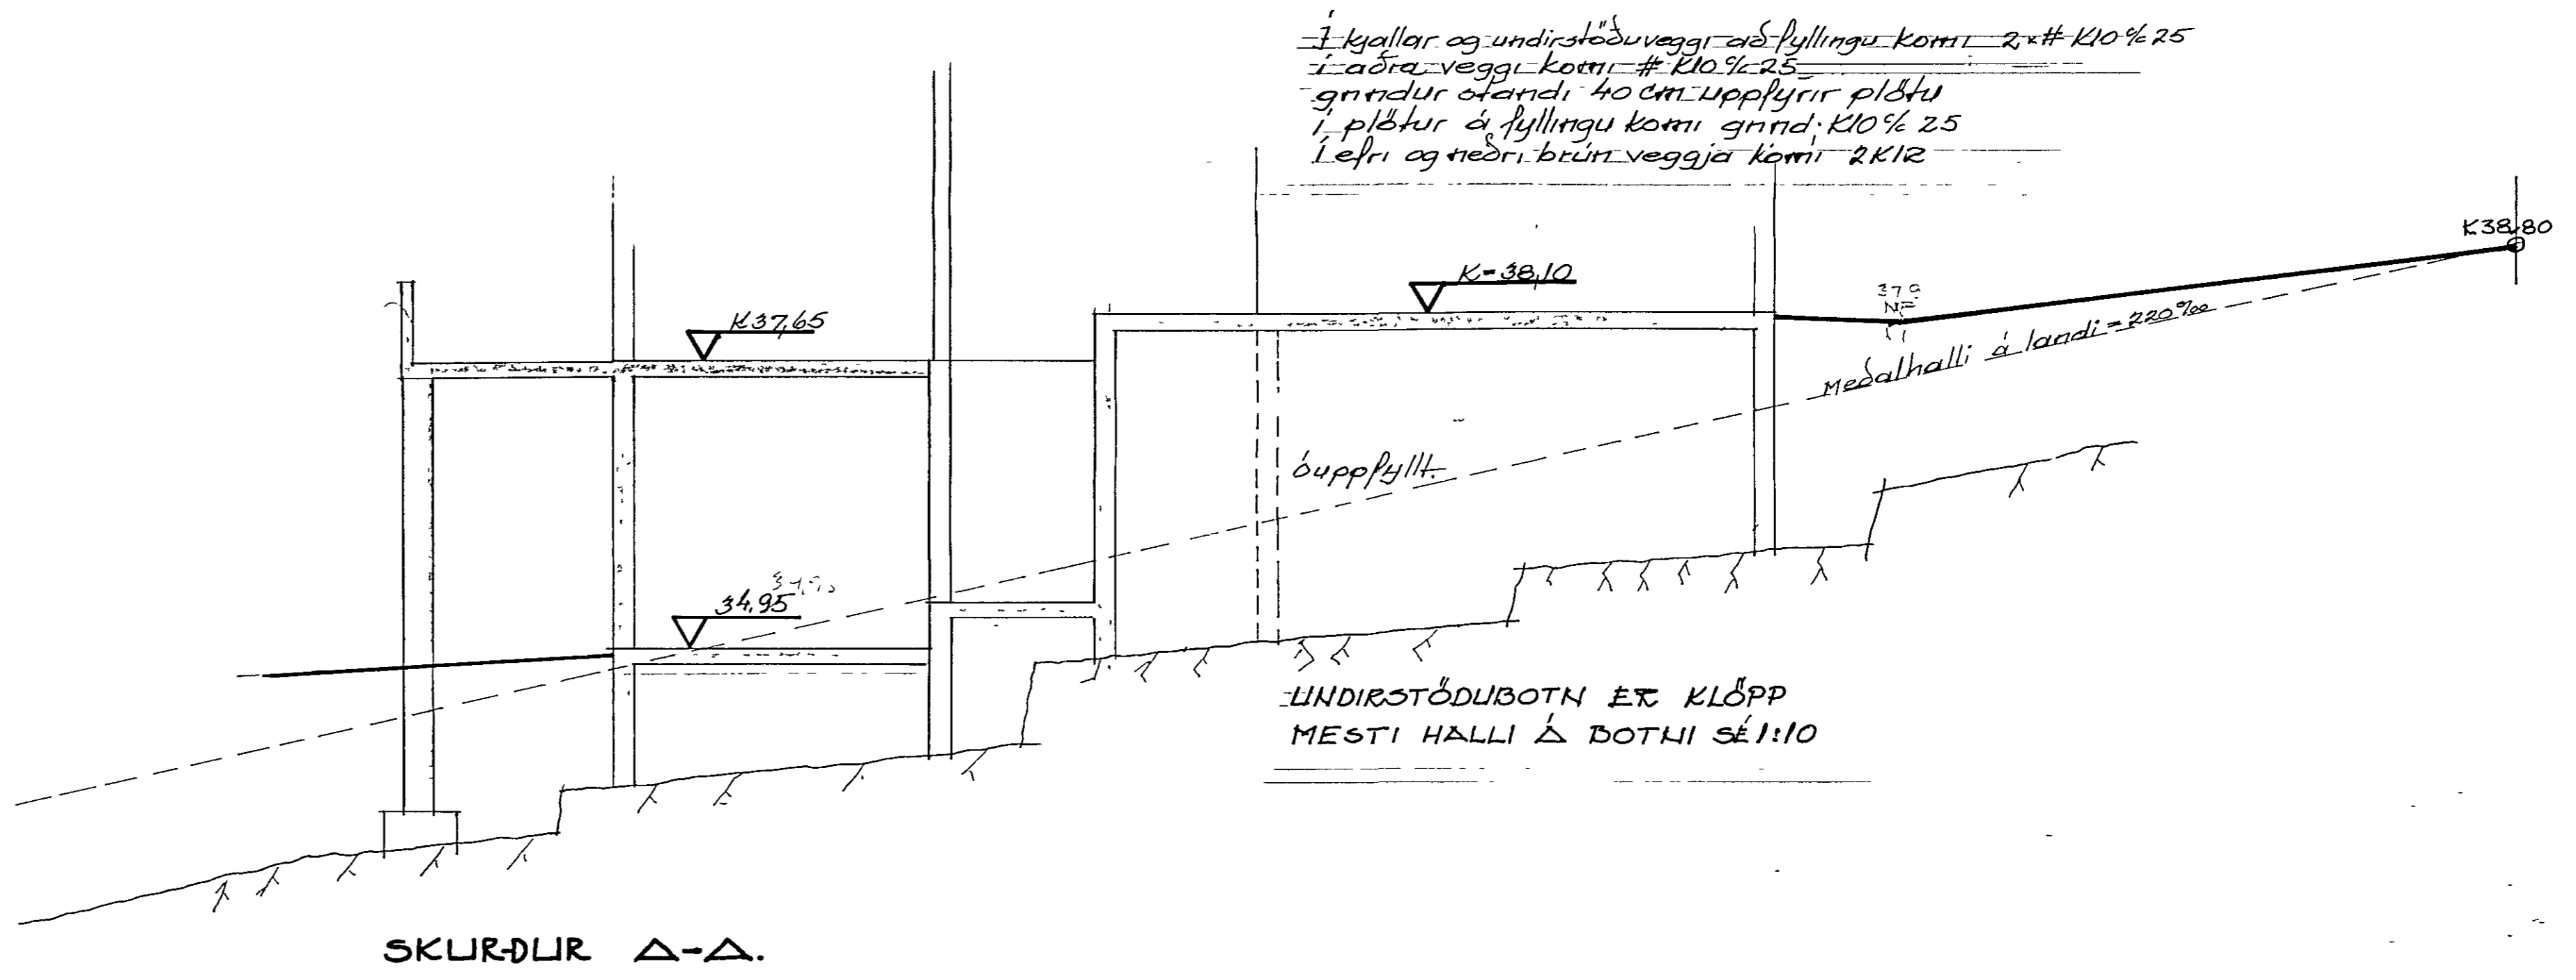 Í kjallar og undirstöðuveggi að fyllingu komi 2x# K10 % 25
í aðra veggi komi # K10 % 25
grindur standi 40 cm uppfyrir plötu
í plötur á fyllingu komi grind. K10 % 25
Í efri og neðri brún veggja komi 2K12
K38,80
K=38,10
37,9
K37,65
Meðalhalli á landi = 220‰
óuppfyllt.
34,95
UNDIRSTÖÐUBOTN ER KLÖPP
MESTI HALLI Á BOTNI SÉ 1:10
SKURÐUR A-A.